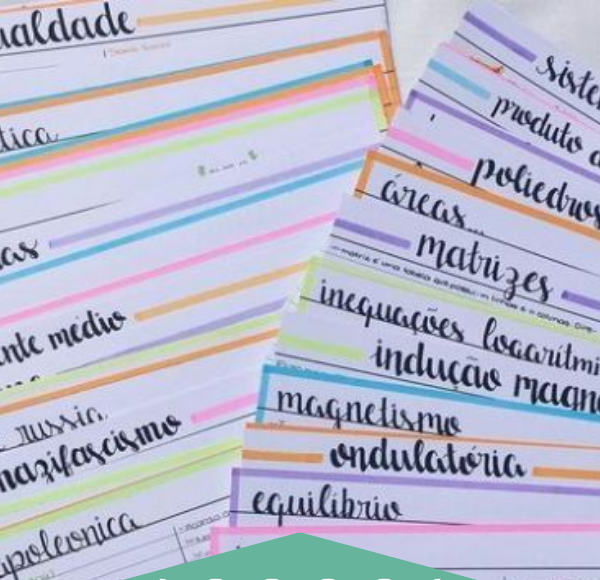 ualdade
tica
as
nte médio
russia
nazifascismo
apoleonica
siste
produto
poliedros
áreas
matrizes
inequações logarítmi
indução magn
magnetismo
ondulatória
equilíbrio